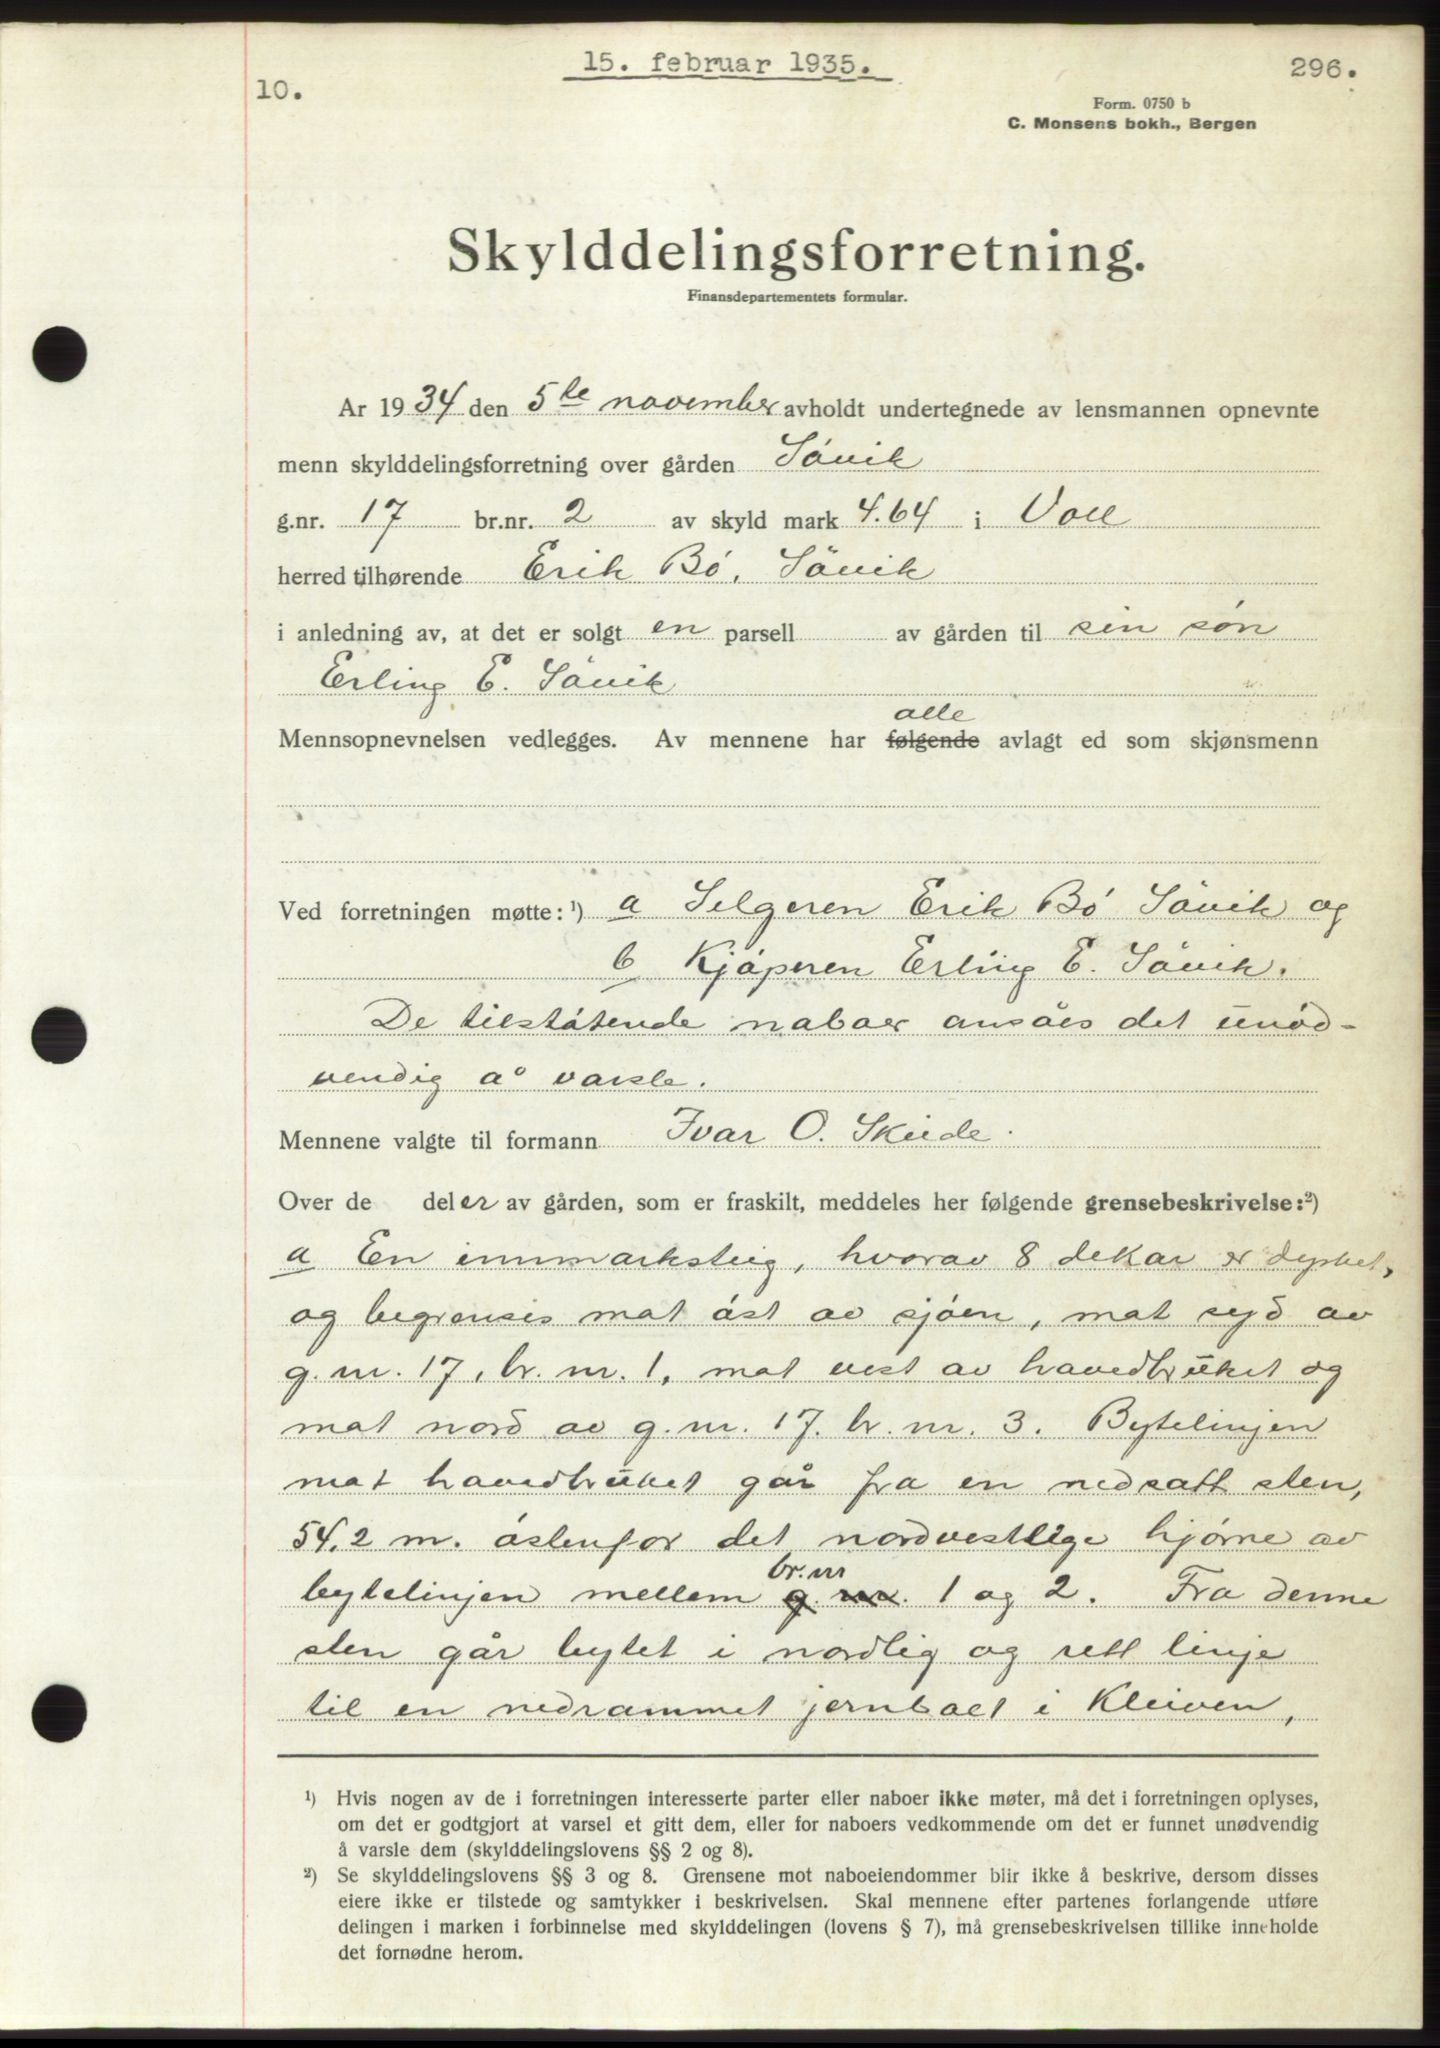 15. februar 1935.
296.
10.
Form. 0750 b
C. Monsens bokh., Bergen
Skylddelingsforretning.
Finansdepartementets formular.
Ar 1934 den 5te november avholdt undertegnede av lensmannen opnevnte
menn skylddelingsforretning over gården Søvik
g.nr. 17 br.nr. 2 av skyld mark 4.64 i Voll
herred tilhørende Erik Bø, Søvik
i anledning av, at det er solgt en parsell av gården til sin søn
Erling E. Søvik
alle
Mennsopnevnelsen vedlegges. Av mennene har følgende avlagt ed som skjønsmenn
Ved forretningen møtte:¹) a Selgeren Erik Bø Søvik og
b Kjøperen Erling E. Søvik.
De tilstøtende naboer ansåes det unød-
vendig å varsle.
Mennene valgte til formann Ivar O. Skeide.
Over de deler av gården, som er fraskilt, meddeles her følgende grensebeskrivelse:²)
a En innmarksteig, hvorav 8 dekar er dyrket,
og begrenses mot øst av sjøen, mot syd av
g.nr. 17, br.nr. 1, mot vest av hovedbruket og
mot nord av g.nr. 17. br.nr. 3. Bytelinjen
mot hovedbruket går fra en nedsatt sten,
54.2 m. østenfor det nordvestlige hjørne av
br.nr
bytelinjen mellem g.nr. 1 og 2. Fra denne
sten går bytet i nordlig og rett linje
til en nedrammet jernbolt i Kleiven,
¹) Hvis nogen av de i forretningen interesserte parter eller naboer ikke møter, må det i forretningen oplyses,
om det er godtgjort at varsel et gitt dem, eller for naboers vedkommende om det er funnet unødvendig
å varsle dem (skylddelingslovens §§ 2 og 8).
²) Se skylddelingslovens §§ 3 og 8. Grensene mot naboeiendommer blir ikke å beskrive, dersom disses
eiere ikke er tilstede og samtykker i beskrivelsen. Skal mennene efter partenes forlangende utføre
delingen i marken i forbinnelse med skylddelingen (lovens § 7), må grensebeskrivelsen tillike inneholde
det fornødne herom.